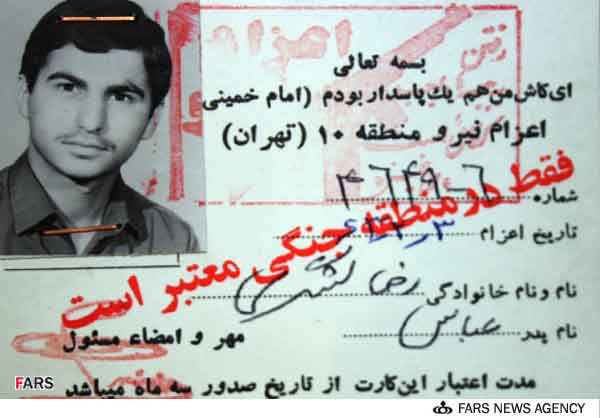 بسمه تعالی
ای کاش من هم یك پاسدار بودم (امام خمینی
اعزام نیرو منطقه ۱۰ (تهران)
شماره ۴۶۴۹-۶
تاریخ اعزام
فقط در منطقه جنگی معتبر است
نام و نام خانوادگی رضا
نام پدر عباس
مهر و امضاء مسئول
مدت اعتبار این کارت از تاریخ صدور سه ماه میباشد
اعزام
FARS
FARS NEWS AGENCY